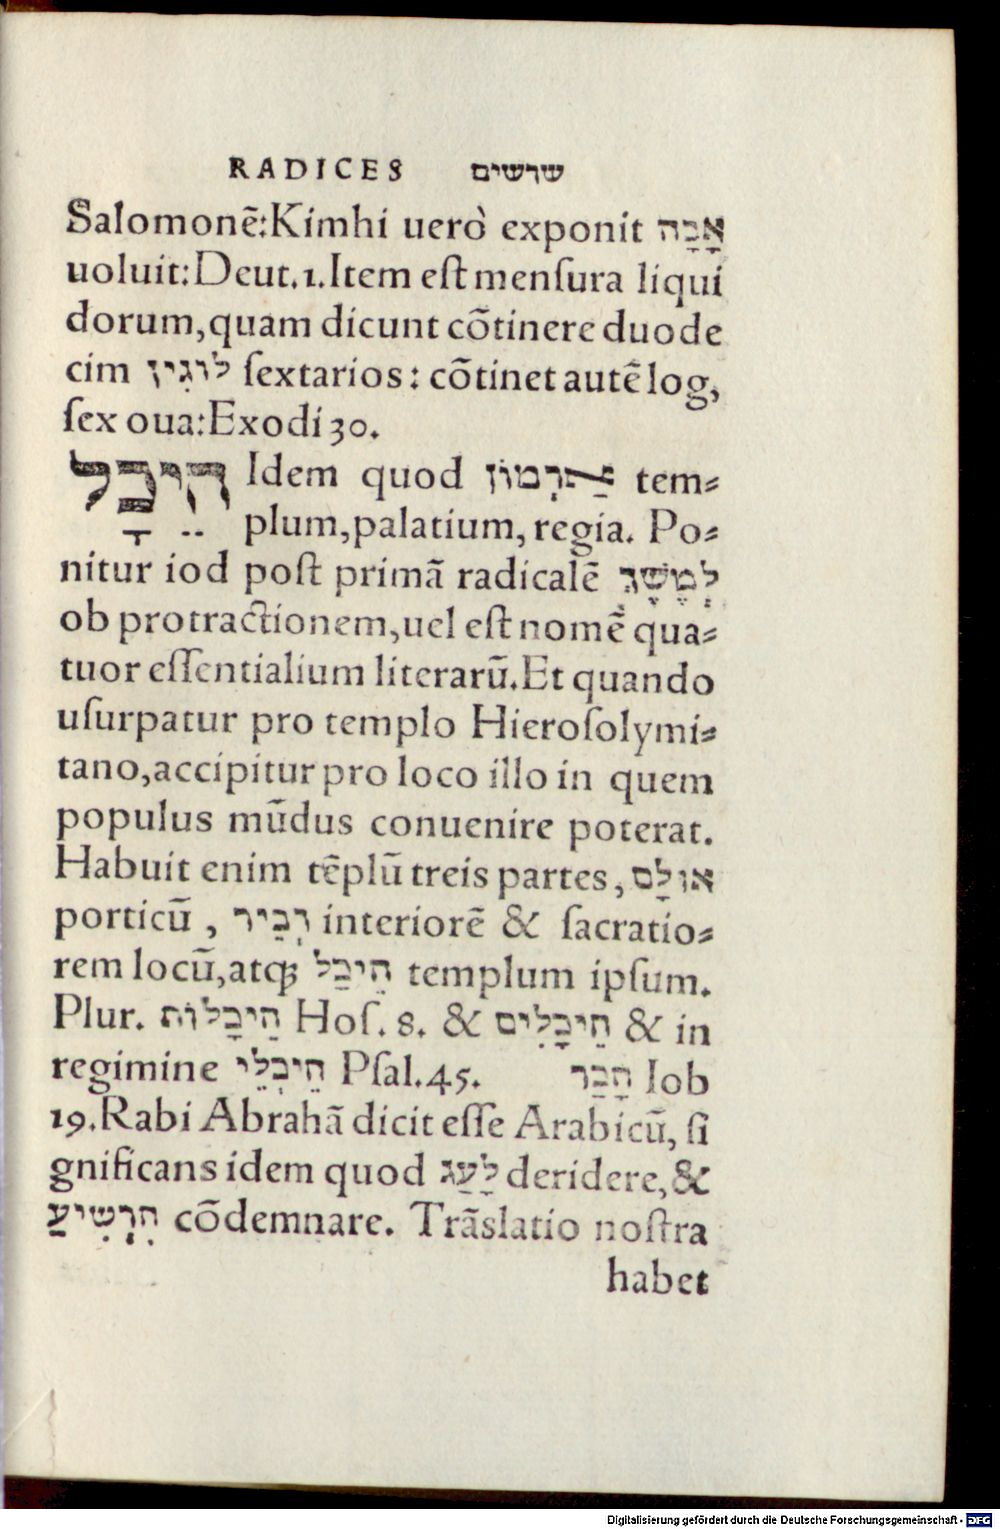 RADICES שרשים
Salomonẽ:Kimhi uerò exponit אָבָה
uoluit:Deut.1.Item eſt menſura liqui
dorum,quam dicunt cõtinere duode
cim לוגִין ſextarios: cõtinet autẽ log,
ſex oua:Exodi 30.
הֵיכָל Idem quod אַרְמוֹן tem⸗
plum,palatium, regia. Po⸗
nitur iod poſt primã radicalẽ לְמֶשֶׁךְ
ob protractionem,uel eſt nomẽ qua⸗
tuor eſſentialium literarũ.Et quando
uſurpatur pro templo Hieroſolymi⸗
tano,accipitur pro loco illo in quem
populus mũdus conuenire poterat.
Habuit enim tẽplũ treis partes, אולָם
porticũ , דְבִיר interiorẽ & ſacratio⸗
rem locũ,atq; הֵיכַל templum ipſum.
Plur. הֵיכָלוֹת Hoſ. 8. & הֵיכָלִים & in
regimine הֵיכְלֵי Pſal.45. הָכַר Iob
19.Rabi Abrahã dicit eſſe Arabicũ, ſi
gnificans idem quod לָעַג deridere,&
הִרְשִׁיעַ cõdemnare. Trãslatio noſtra
habet
Digitalisierung gefördert durch die Deutsche Forschungsgemeinschaft - DFG